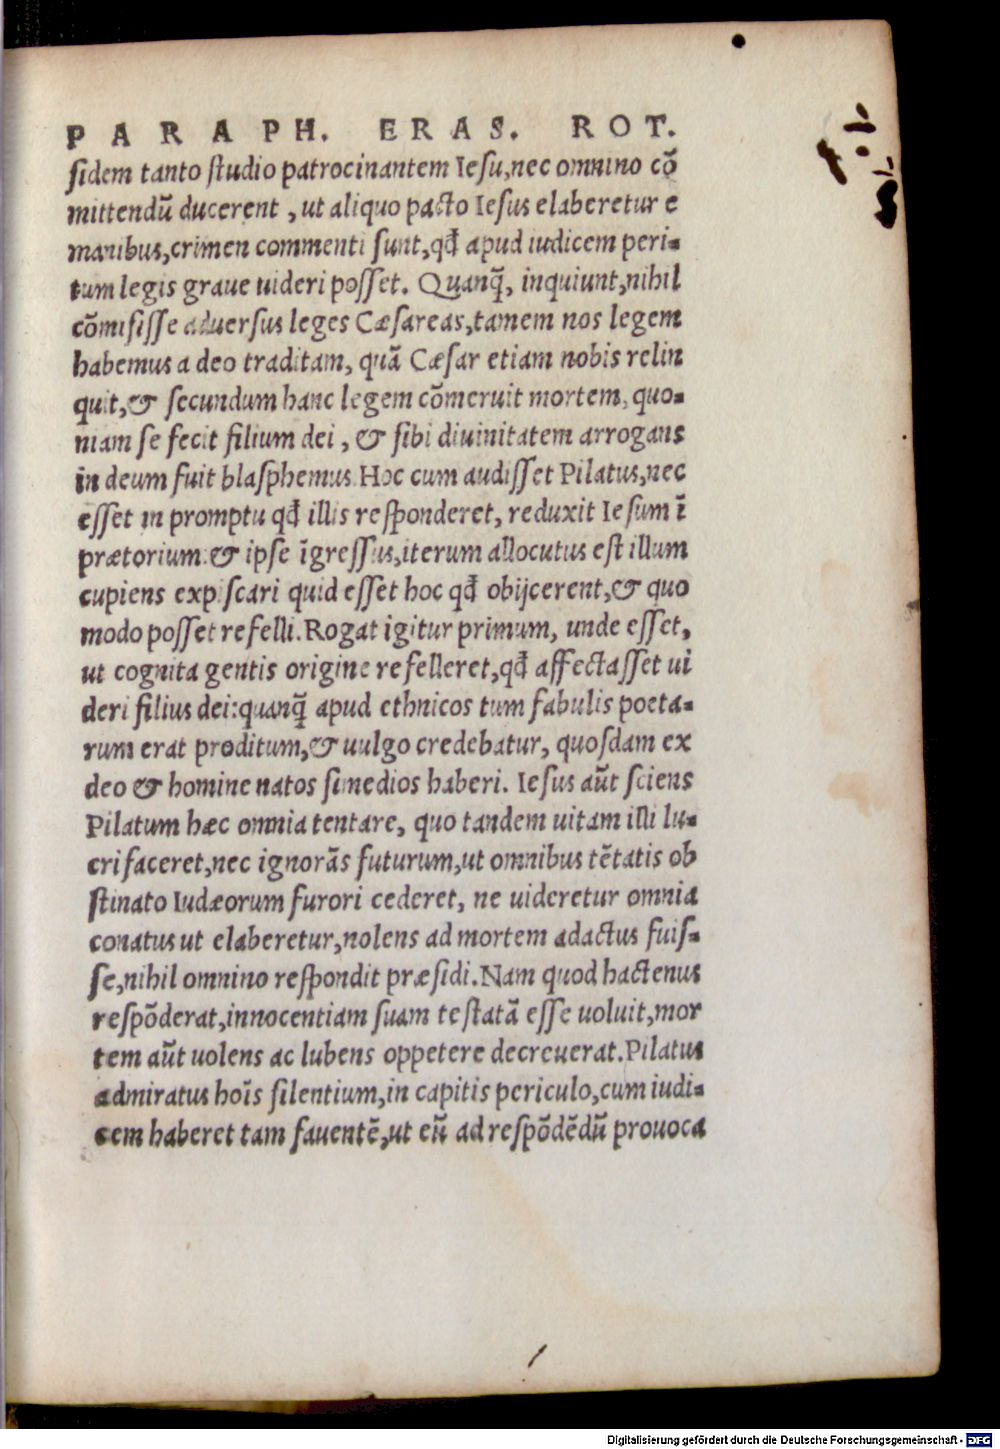 PARAPH. ERAS. ROT.
sidem tanto studio patrocinantem Iesu,nec omnino cõ
mittendũ ducerent , ut aliquo pacto Iesus elaberetur e
manibus,crimen commenti sunt,qđ apud iudicem peri-
tum legis graue uideri posset. Quanq̃, inquiunt,nihil
cõmisisse aduersus leges Cæsareas,tamem nos legem
habemus a deo traditam, quã Cæsar etiam nobis relin
quit,& secundum hanc legem cõmeruit mortem, quo-
niam se fecit filium dei , & sibi diuinitatem arrogans
in deum fuit blasphemus. Hoc cum audisset Pilatus,nec
esset in promptu qđ illis responderet, reduxit Iesum ĩ
prætorium: & ipse ĩgressus,iterum allocutus est illum
cupiens expiscari quid esset hoc qđ obijcerent,& quo
modo posset refelli. Rogat igitur primum, unde esset,
ut cognita gentis origine refelleret,qđ affectasset ui
deri filius dei:quanq̃ apud ethnicos tum fabulis poeta-
rum erat proditum,& uulgo credebatur, quosdam ex
deo & homine natos simedios haberi. Iesus aũt sciens
Pilatum hæc omnia tentare, quo tandem uitam illi lu-
crifaceret,nec ignorãs futurum,ut omnibus tẽtatis ob
stinato Iudæorum furori cederet, ne uideretur omnia
conatus ut elaberetur,nolens ad mortem adactus fuis-
se,nihil omnino respondit præsidi. Nam quod hactenus
respõderat,innocentiam suam testatã esse uoluit,mor
tem aũt uolens ac lubens oppetere decreuerat. Pilatus
admiratus hoĩs silentium,in capitis periculo,cum iudi-
cem haberet tam fauentẽ,ut eũ ad respõdẽdũ prouoca
Digitalisierung gefördert durch die Deutsche Forschungsgemeinschaft - DFG